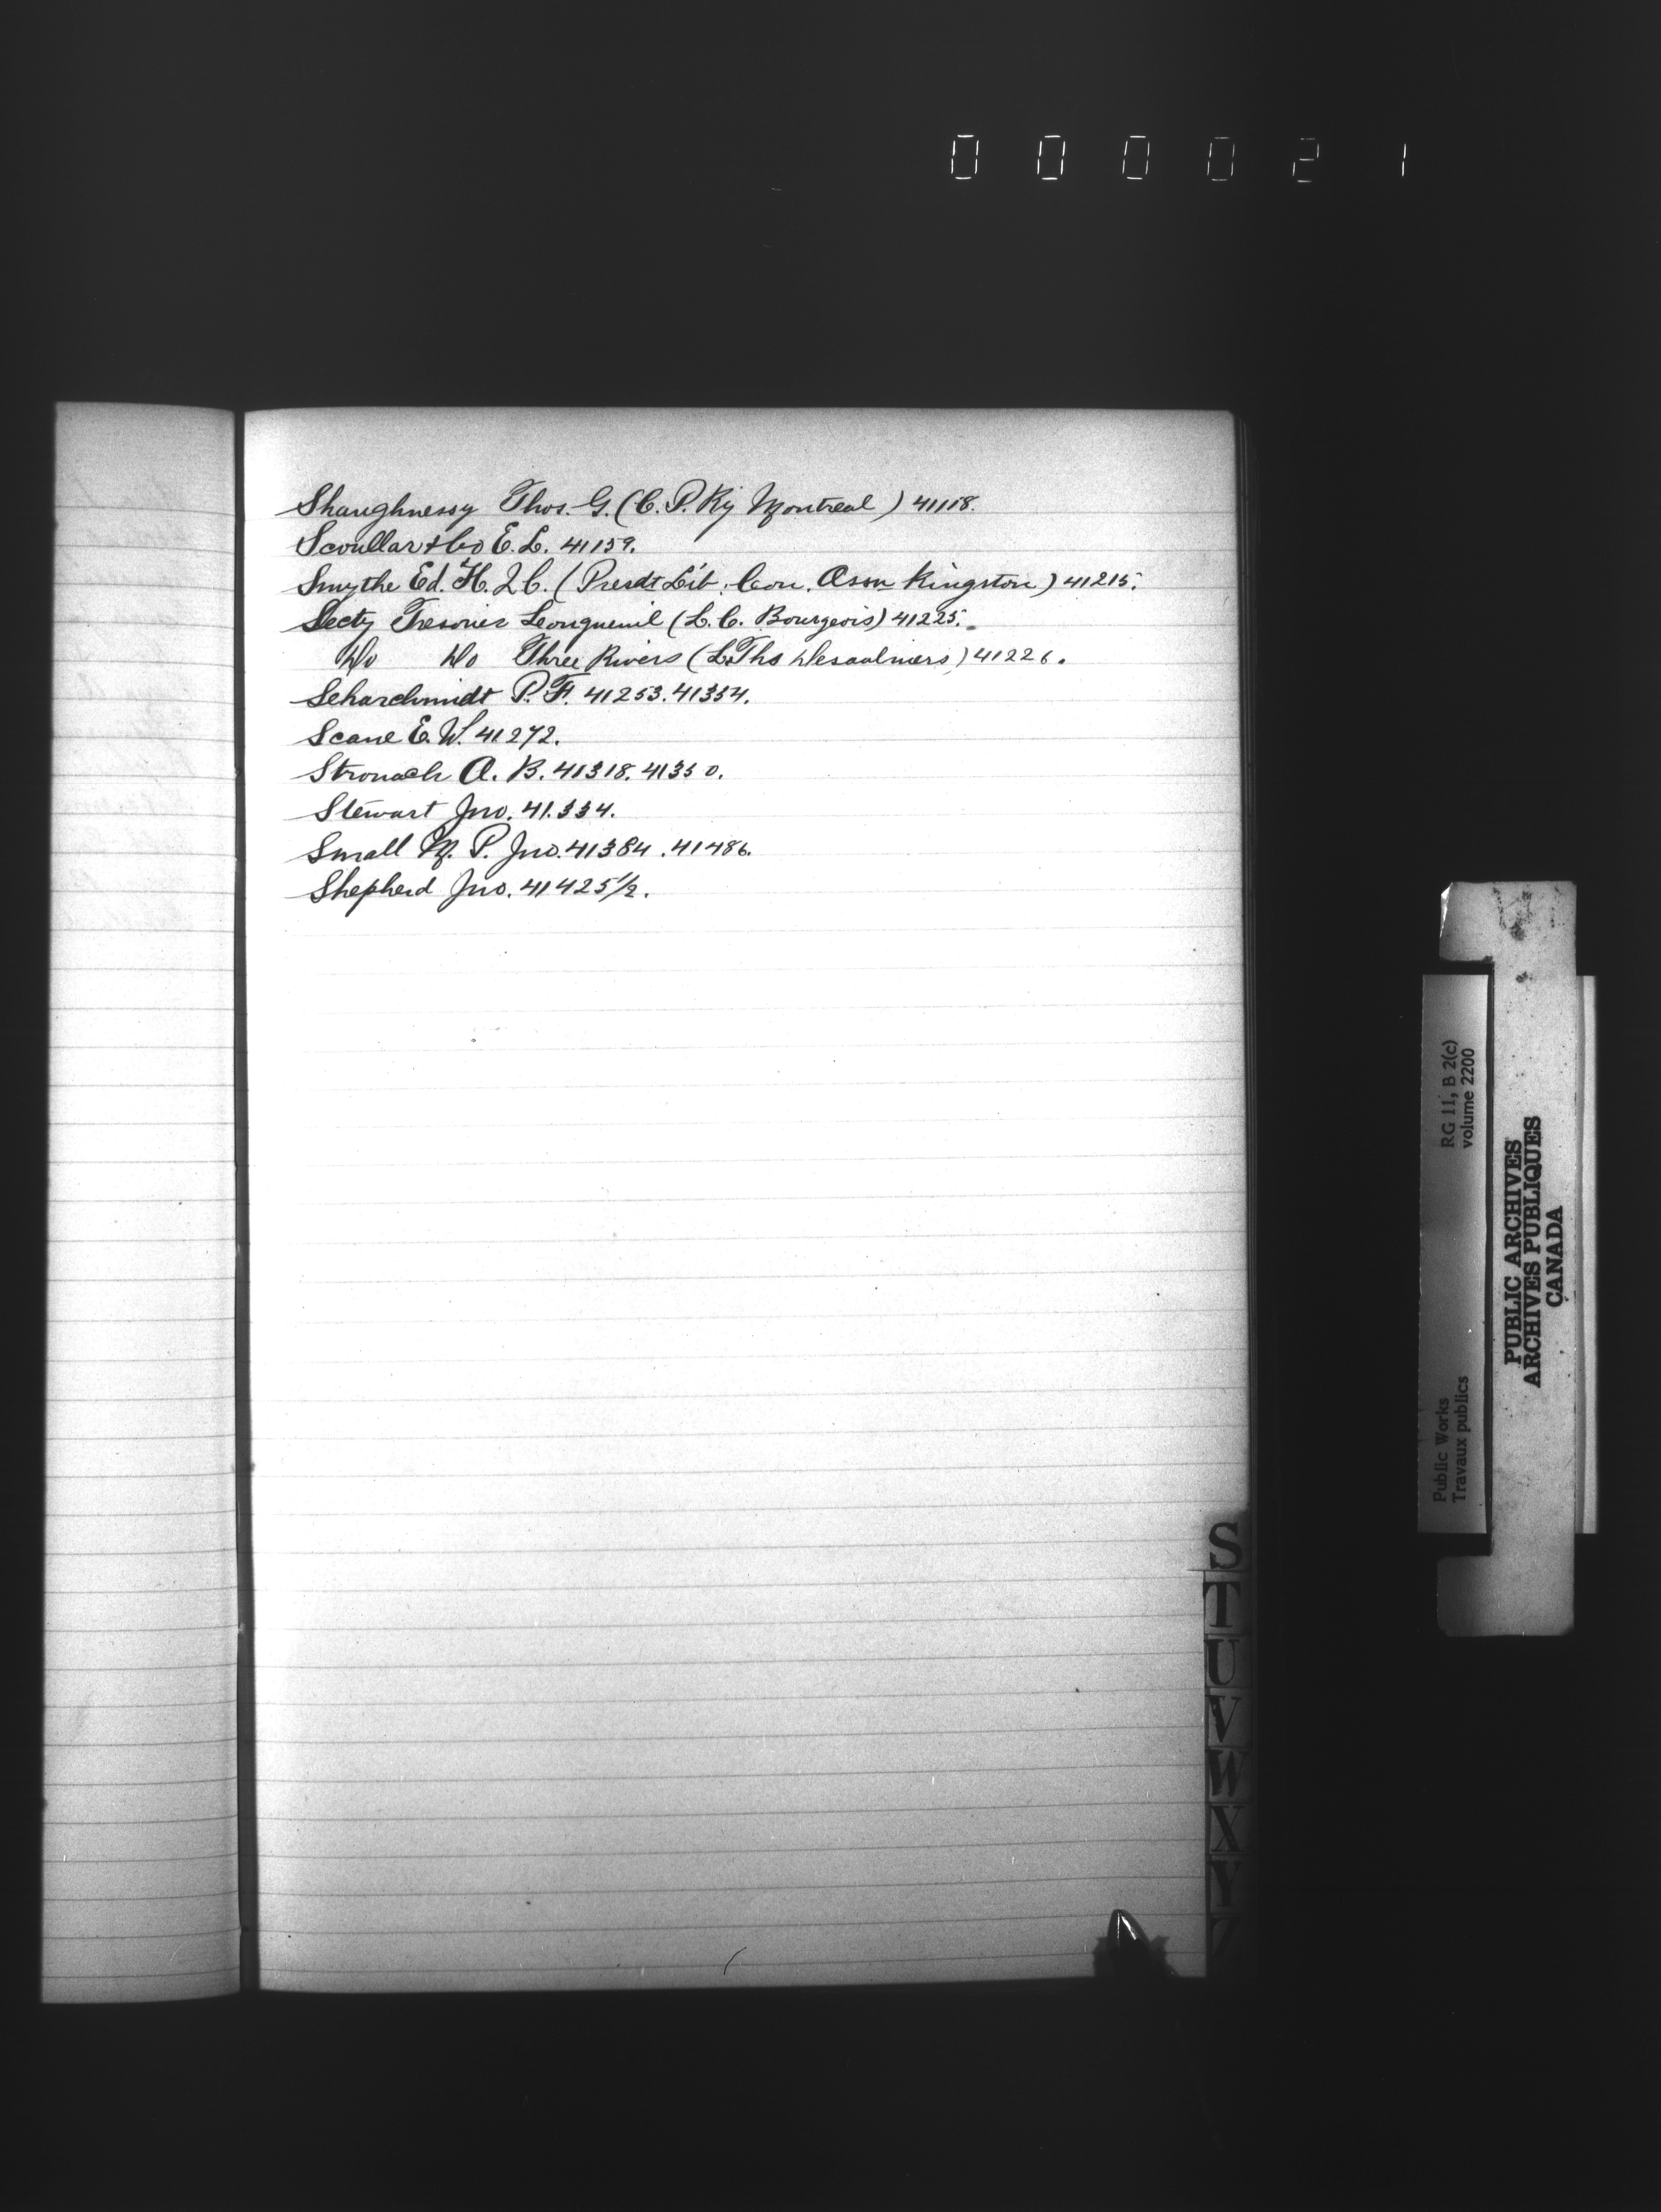 000021
Shaughnessy Thos. G. (C. P. Ry Montreal) 41118.
Scoullar & Co E. L. 41159.
Smythe Ed. H. Q C. (Presdt Lib. Con. Assn Kingston) 41215.
Secty Tresorier Longueuil (L. C. Bourgeois) 41225.
Do Do Three Rivers (L. Ths Desaulniers) 41226.
Scharschmidt P. F. 41253. 41354.
Scane E. W. 41272.
Stronach A. B. 41318. 41350.
Stewart Jno. 41.334.
Small M. P. Jno. 41384. 41486.
Shepherd Jno. 41425½.
S
T
U
V
W
X
Y
Z
Public Works
Travaux publics
RG 11, B 2(c)
volume 2200
PUBLIC ARCHIVES
ARCHIVES PUBLIQUES
CANADA